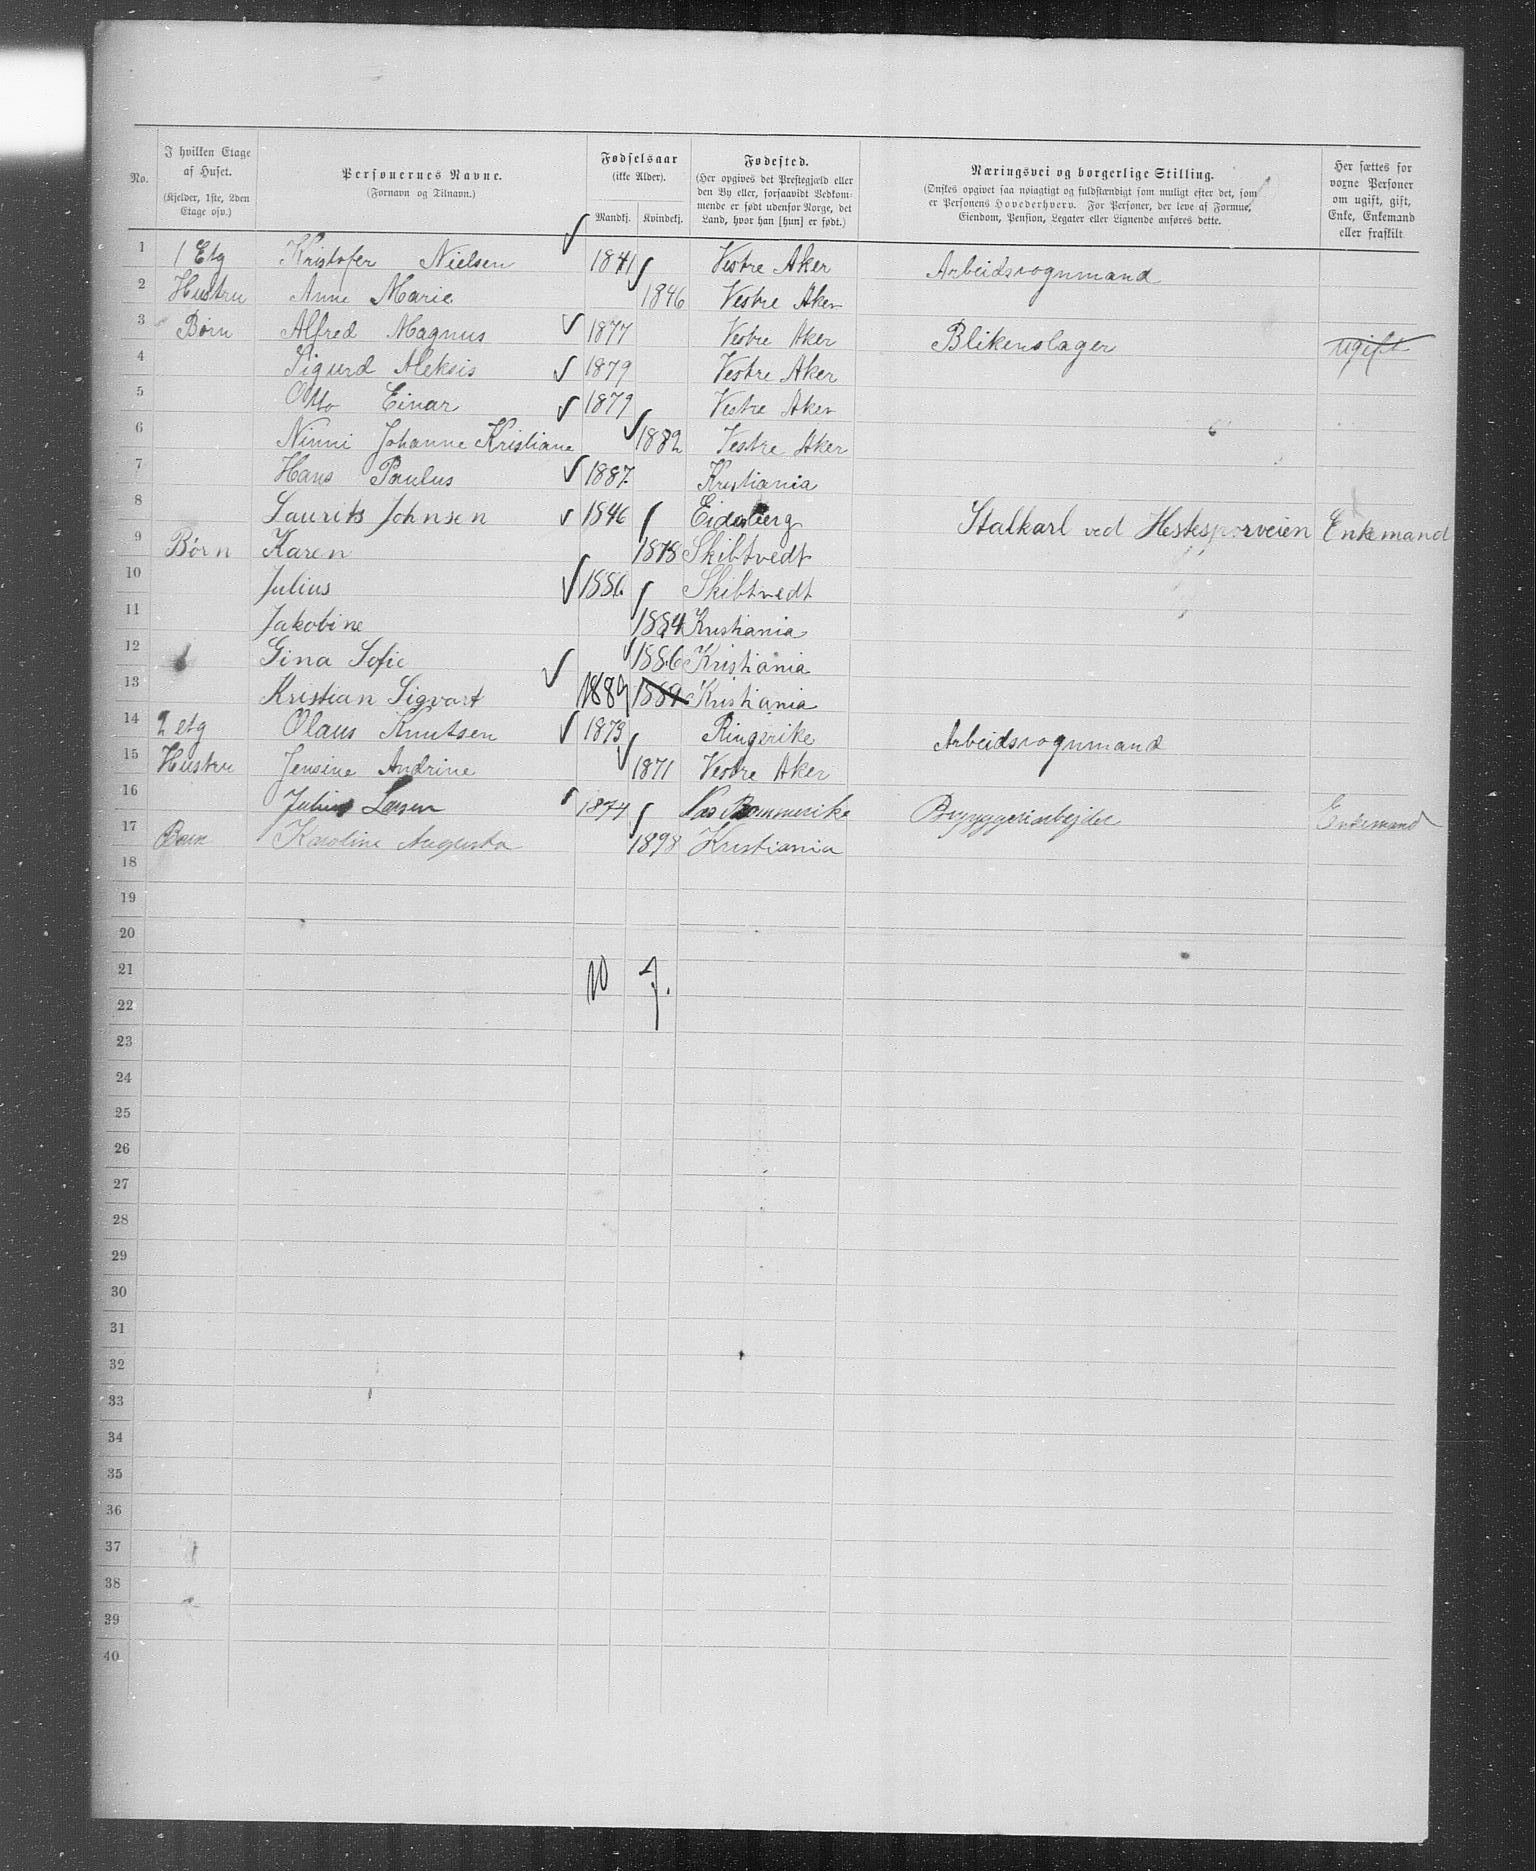 No. I hvilken Etage af Huset. (Kjelder, 1ste, 2den Etage osv.) Personernes Navne. (Fornavn og Tilnavn.) Fødselsaar (ikke Alder). Mandkj. Kvindekj. Fødested. (Her opgives det Præstegjæld eller den By eller, forsaavidt Vedkommende er født udenfor Norge, det Land, hvor han [hun] er født.) Næringsvei og borgerlige Stilling. (Ønskes opgivet saa nøiagtigt og fuldstændigt som muligt efter det, som er Personens Hovederhverv. For Personer, der leve af Formue, Eiendom, Pension, Legater eller Lignende anføres dette. Her sættes for voxne Personer om ugift, gift, Enke, Enkemand eller fraskilt
1 1 Etg Kristofer Nielsen 1841 Vestre Aker Arbeidsvognmand
2 Hustru Anne Marie 1846 Vestre Aker
3 Børn Alfred Magnus 1877 Vestre Aker Blikenslager ugift
4 Sigurd Aleksis 1879 Vestre Aker
5 Otto Einar 1879 Vestre Aker
6 Ninni Johanne Kristiane 1882 Vestre Aker
7 Hans Paulus 1887. Kristiania
8 Laurits Johnsen 1846 Eidsberg Stalkarl ved Hestesporveien Enkemand
9 Børn Karen 1878 Skibtvedt
10 Julius 1880. Skibtvedt
11 Jakobine 1884 Kristiania
12 Gina Sofie 1886 Kristiania
13 Kristian Sigvart 1889 1889 Kristiania
14 2 etg Olaus Knutsen 1873 Ringerike Arbeidsvognmand
15 Hustru Jensine Andrine 1871 Vestre Aker
16 Julius Larsen 1874 Nas Rommerike Bryggeriarbejder Enkemand
17 Barn Karoline Augusta 1898 Kristiania
18
19
20
21 10 7.
22
23
24
25
26
27
28
29
30
31
32
33
34
35
36
37
38
39
40